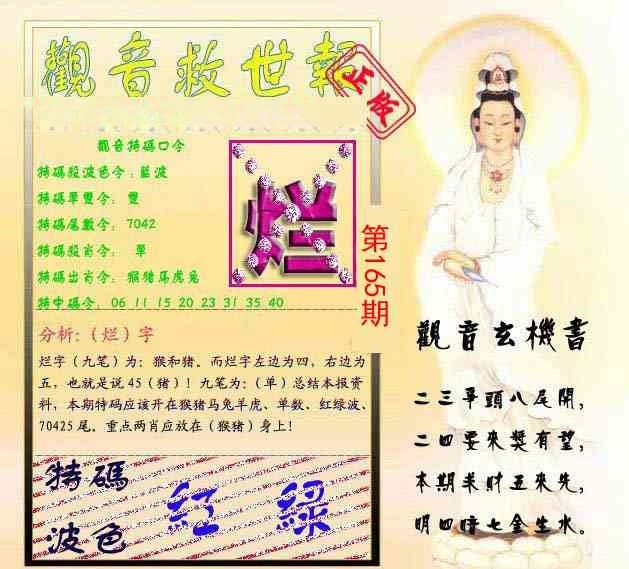 觀音救世報
正版
觀音特碼口令
特碼殺波色令:藍波
特碼單雙令: 雙
特碼尾數令: 7042
特碼殺肖令: 單
特碼出肖令: 猴猪馬虎兔
特中碼令: 06 11 15 20 23 31 35 40
烂
第165期
分析:(烂)字
烂字(九笔)为:猴和猪。而烂字左边为四,右边为
五,也就是说45(猪)!九笔为:(单)总结本报资
料,本期特码应该开在猴猪马兔羊虎、单数、红绿波、
70425尾。重点两肖应放在(猴猪)身上!
特碼
波色
紅 綠
觀音玄機書
二三爭頭八尾開,
二四要來獎有望,
本期求財五來先,
明四暗七金生水。